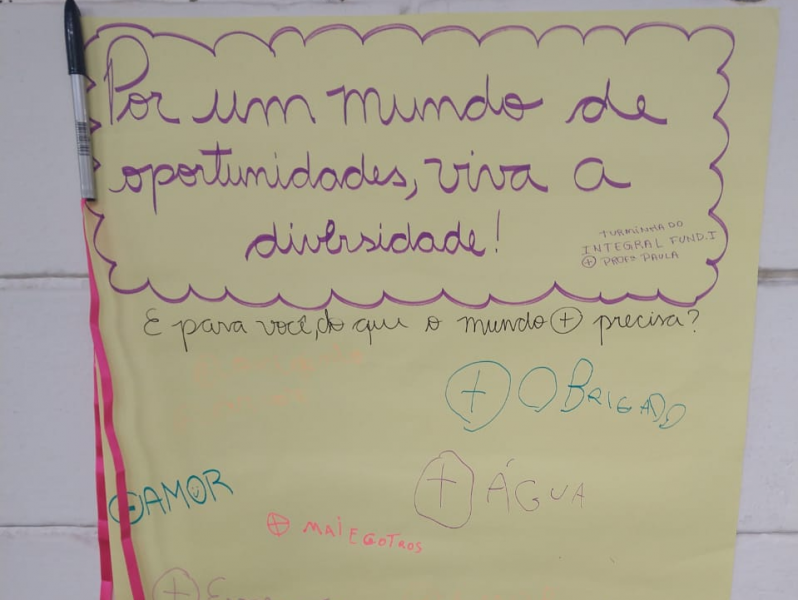 Por um mundo de
oportunidades, viva a
diversidade!
TURMINHA DO
INTEGRAL FUND. I
+ PROFª PAULA
E para você, do que o mundo + precisa?
+ OBRIGADO
+ AMOR
+ ÁGUA
+ MAIEGOTROS
+